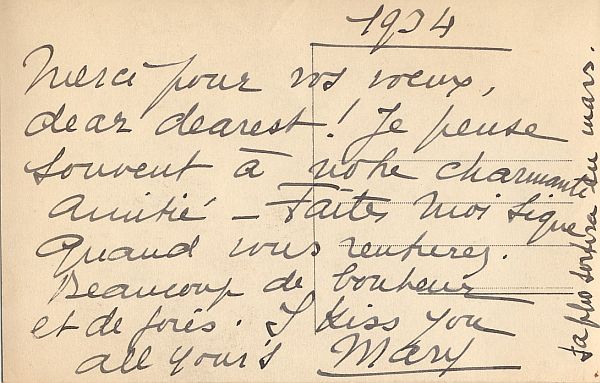 1934
Merci pour vos voeux,
dear dearest! Je pense
souvent à notre charmante
amitié – Faites moi signe
Quand vous rentrerez.
Beaucoup de bonheur
et de joies. I kiss you
all your's Mary
sapho sortira du mars.